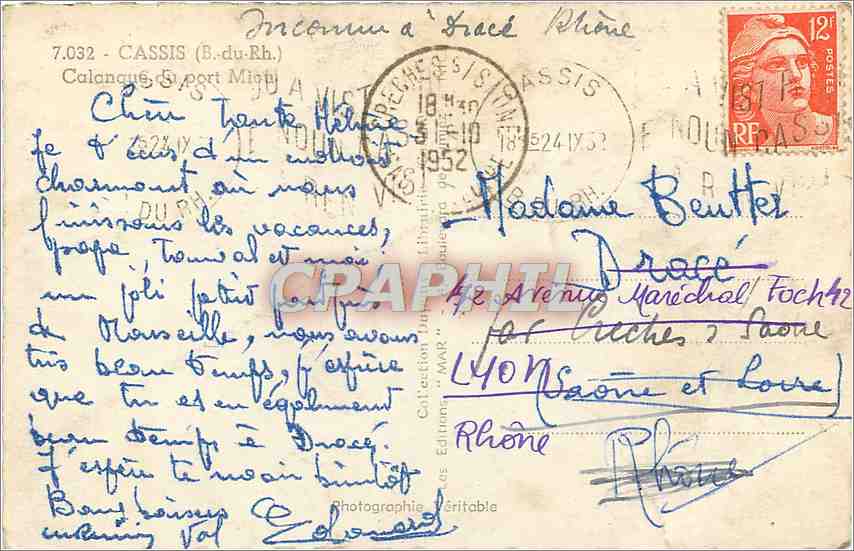 Inconnu à Dracé Rhône
7.032 - CASSIS (B.-du-Rh.)
Calanque du port Miou
Chère tante Hélène,
je t'écris d'un endroit
charmant où nous
finissons les vacances,
papa, et moi
un joli petit port près
de Marseille, nous avons
très beau temps, j'espère
que tu as eu également
beau temps à Dracé.
J'espère te voir bientôt
Bons baisers
Val Edouard
CRECHES S/ SAÔNE
18 H 30
31 - 10
1952
SAÔNE ET LOIRE
CASSIS
18H45 24 IX 52
B. DU RH.
12F
POSTES
RF
Madame Beutter
Dracé
42 Avenue Maréchal Foch 42
par Crèches s/ Saône
LYON
(Saône et Loire)
Rhône
Rhône
Les Editions "MAR"
Photographie Véritable
CPAPHIL